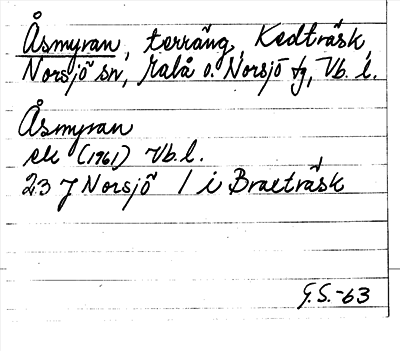 Åsmyran, terräng, Kedträsk,
Norsjö sn, Malå o. Norsjö tg, Vb. l.
Åsmyran
ek (1961) Vb. l.
23 J Norsjö 1 i Braxträsk
G.S.-63